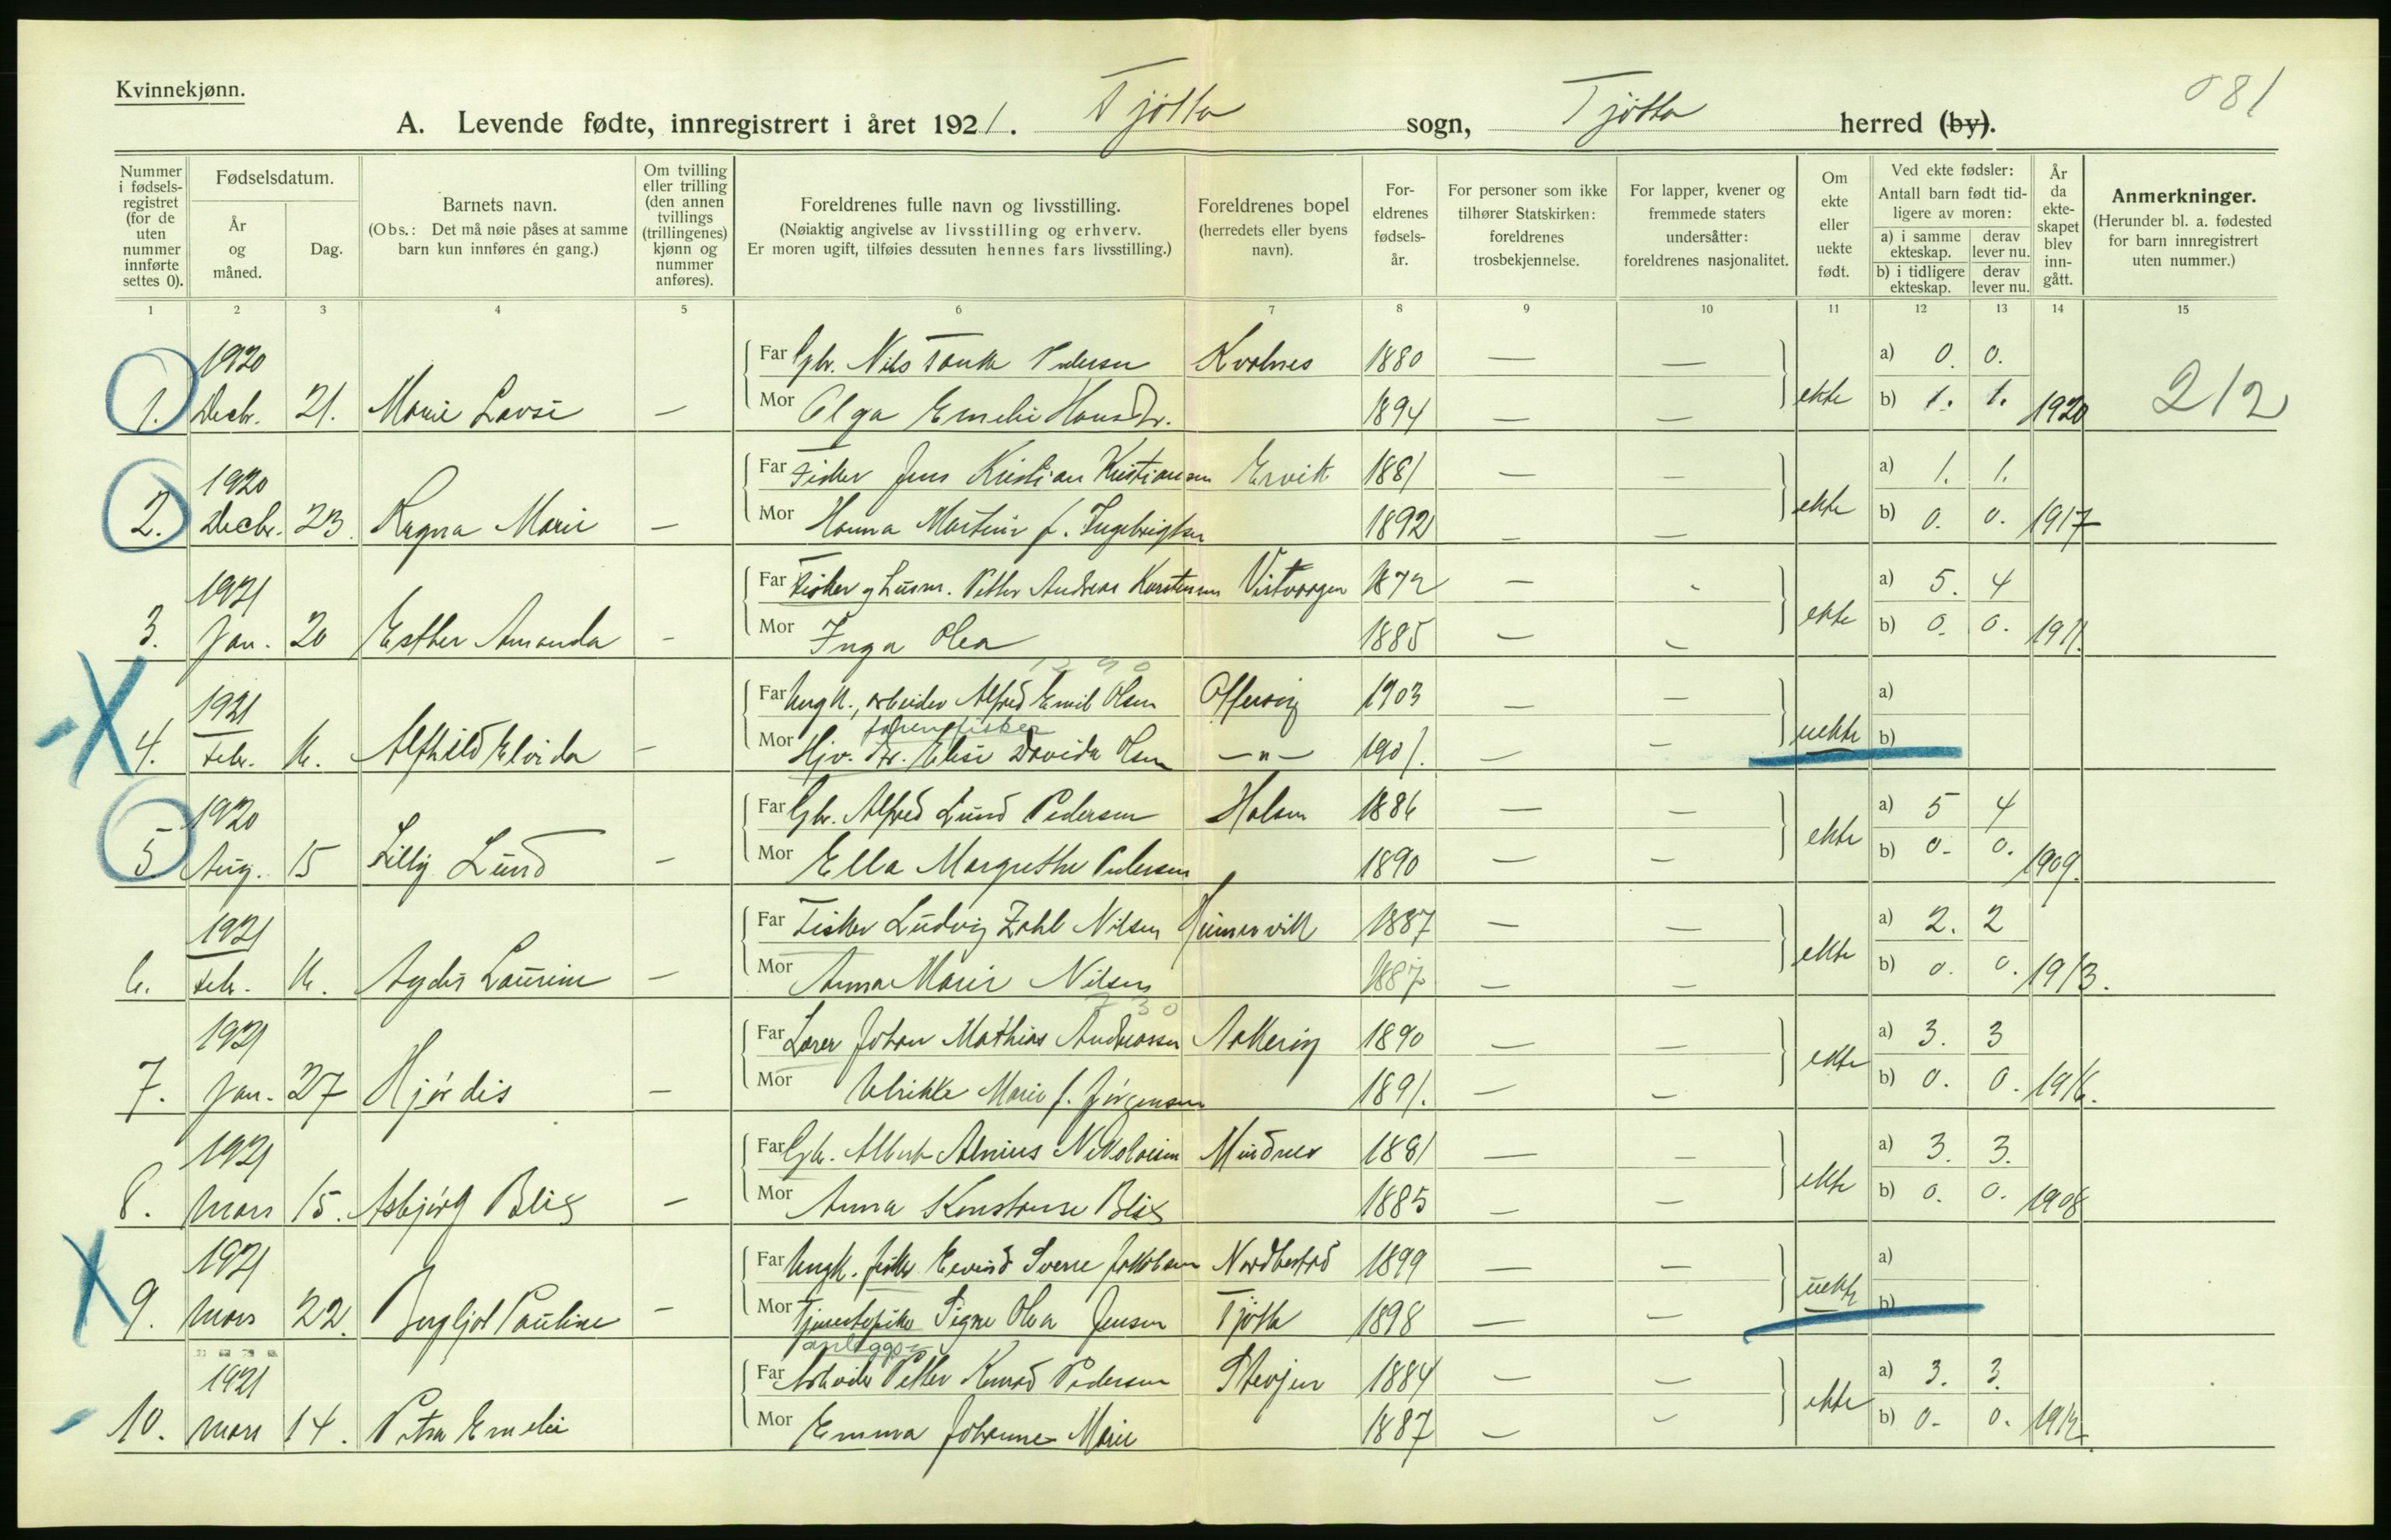 Kvinnekjønn.
081
A. Levende fødte, innregistrert i året 1921. Tjøtta sogn, Tjøtta herred (by).
Nummer i fødsels-registret (for de uten nummer innførte settes 0).
Fødselsdatum.
År og måned.
Dag.
Barnets navn.
(Obs.: Det må nøie påses at samme barn kun innføres én gang.)
Om tvilling eller trilling (den annen tvillings (trillingenes) kjønn og nummer anføres).
Foreldrenes fulle navn og livsstilling.
(Nøiaktig angivelse av livsstilling og erhverv.
Er moren ugift, tilføies dessuten hennes fars livsstilling.)
Foreldrenes bopel (herredets eller byens navn).
For-eldrenes fødsels-år.
For personer som ikke tilhører Statskirken: foreldrenes trosbekjennelse.
For lapper, kvener og fremmede staters undersåtter: foreldrenes nasjonalitet.
Om ekte eller uekte født.
Ved ekte fødsler:
Antall barn født tid-ligere av moren:
a) i samme ekteskap. derav lever nu.
b) i tidligere ekteskap. derav lever nu.
År da ekte-skapet blev inn-gått.
Anmerkninger.
(Herunder bl. a. fødested for barn innregistrert uten nummer.)
1 2 3 4 5 6 7 8 9 10 11 12 13 14 15
1920 Far Gbr. Nils Tank Pedersen Kvalnes 1880 — — a) 0. 0.
1. Decbr. 21. Marie Lovise — Mor Olga Emelie Hansdtr. 1894 — — ekte b) 1. 1. 1920 212
1920 Far Fisker Jens Kristian Kristiansen Ervik 1881 — — a) 1. 1.
2. Decbr. 23. Ragna Marie — Mor Hanna Martine f. Ingebrigtsen 1892 — — ekte b) 0. 0. 1917
1921 Far Fisker og husm. Petter Andreas Karstensen Vistvaagen 1872 — - a) 5. 4
3. Jan. 20 Esther Amanda - Mor Inga Olea 1885 — - ekte b) 0. 0. 1911.
1921 Far Ungk., arbeider Alfred Emil Olsen Offersøy 1903 — — a)
4. Febr. Alfhild Elvida - Mor Hjv. Elise Davida Olsen — " — 1901. — — uekte b)
1920 Far Gbr. Alfred Lund Pedersen Holsen 1886 — — a) 5 4
5 Aug. 15 Lilly Lund — Mor Ella Margrethe Pedersen 1890 — — ekte b) 0. 0. 1909.
1921 Far Fisker Ludvig Zahl Nilsen 1887 — — a) 2. 2
6. Febr. Laurine — Mor Anna Marie Nilsen 1887 — — ekte b) 0. 0. 1913.
730
1921 Far Lærer Johan Mathias Andreassen 1890 — — a) 3. 3
7. Jan. 27 Hjørdis — Mor Ulrikke Marie f. Jörgensen 1891. — — ekte b) 0. 0. 1916.
1921 Far Gbr. Albert Almius Nikolaisen Mindnes 1881 — — a) 3. 3.
8. Mars 15. Asbjørg Blix — Mor Anna Konstanse Blix 1885 — — ekte b) 0. 0. 1908
1921 Far Ungk. fisker Eevind Sverre Jakobsen 1899 — — a)
9. Mars 22. Bergljot Pauline — Mor Tjenestepike Signe Olea Jensen Tjøtta 1898 — — uekte b)
anleggs-
1921 Far Arbeider Petter Konrad Pedersen 1884 — — a) 3. 3.
10. Mars 14. Petra Emelie Mor Emma Johanne Marie 1887 — — ekte b) 0. 0. 1912.